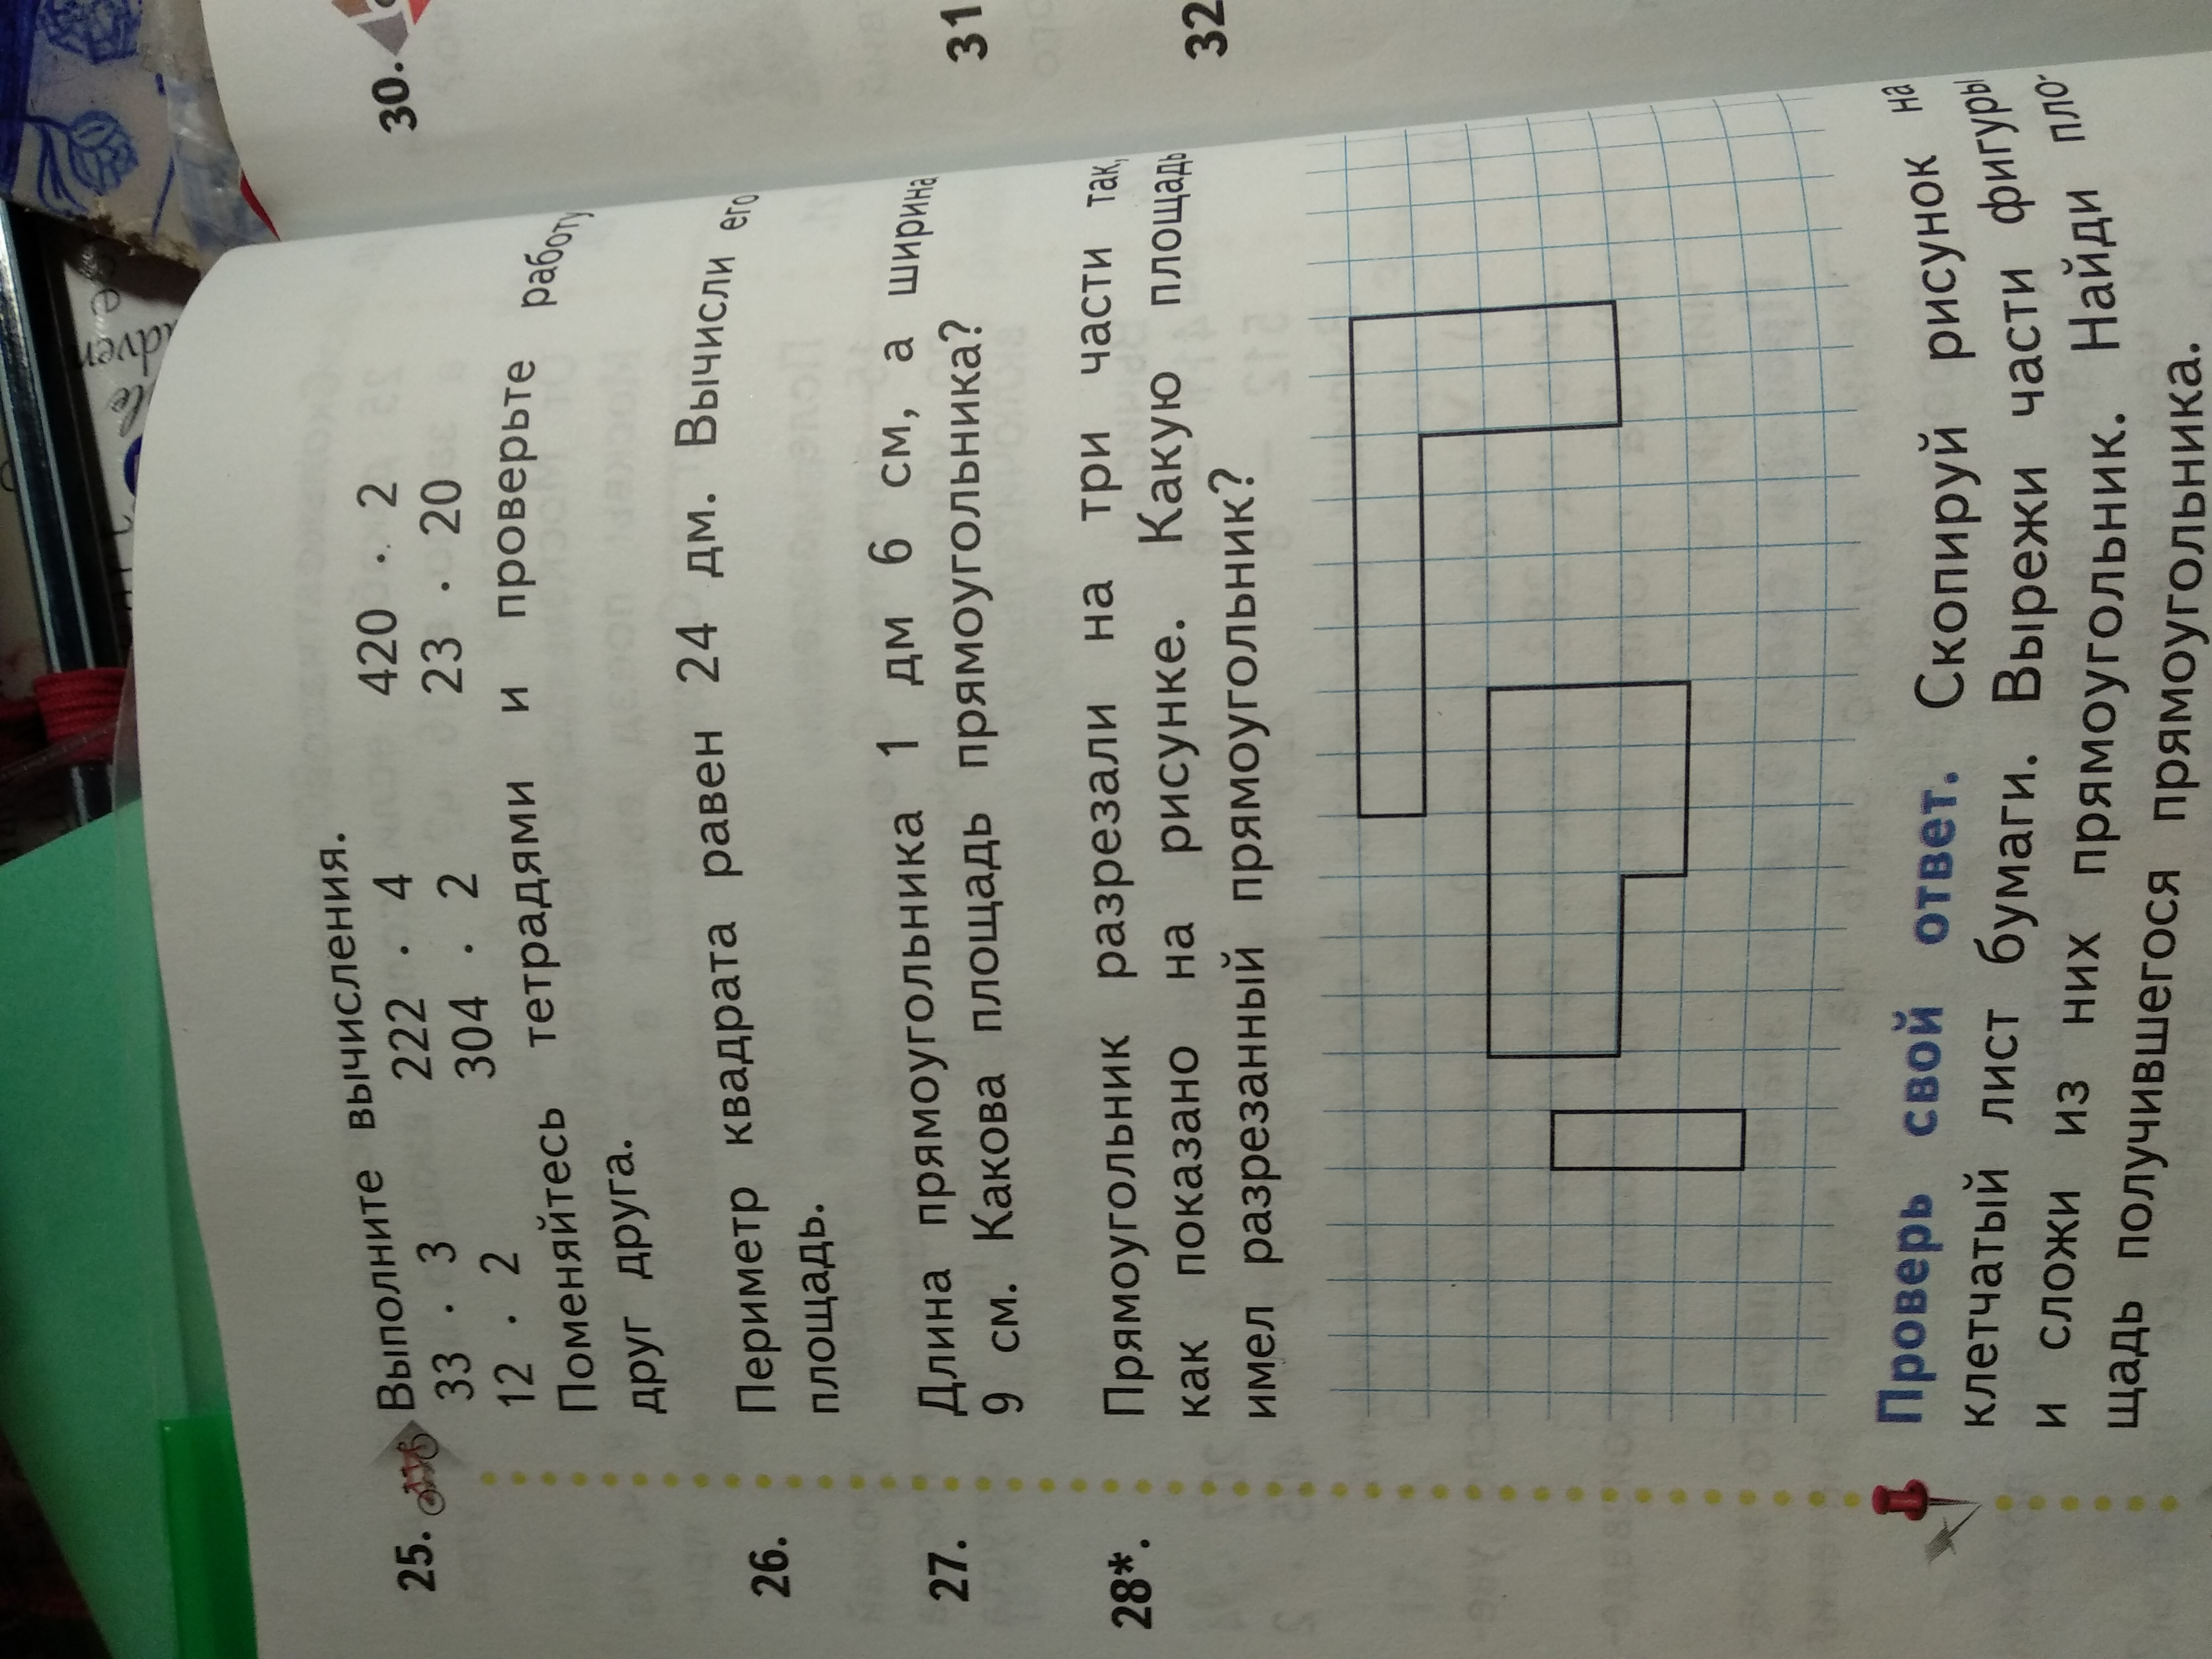 25. Выполните вычисления.
33 · 3 222 · 4 420 · 2
12 · 2 304 · 2 23 · 20
Поменяйтесь тетрадями и проверьте работу
друг друга.
26. Периметр квадрата равен 24 дм. Вычисли его
площадь.
27. Длина прямоугольника 1 дм 6 см, а ширина
9 см. Какова площадь прямоугольника?
28*. Прямоугольник разрезали на три части так,
как показано на рисунке. Какую площадь
имел разрезанный прямоугольник?
Проверь свой ответ. Скопируй рисунок на
клетчатый лист бумаги. Вырежи части фигуры
и сложи из них прямоугольник. Найди пло-
щадь получившегося прямоугольника.
30.
31
32